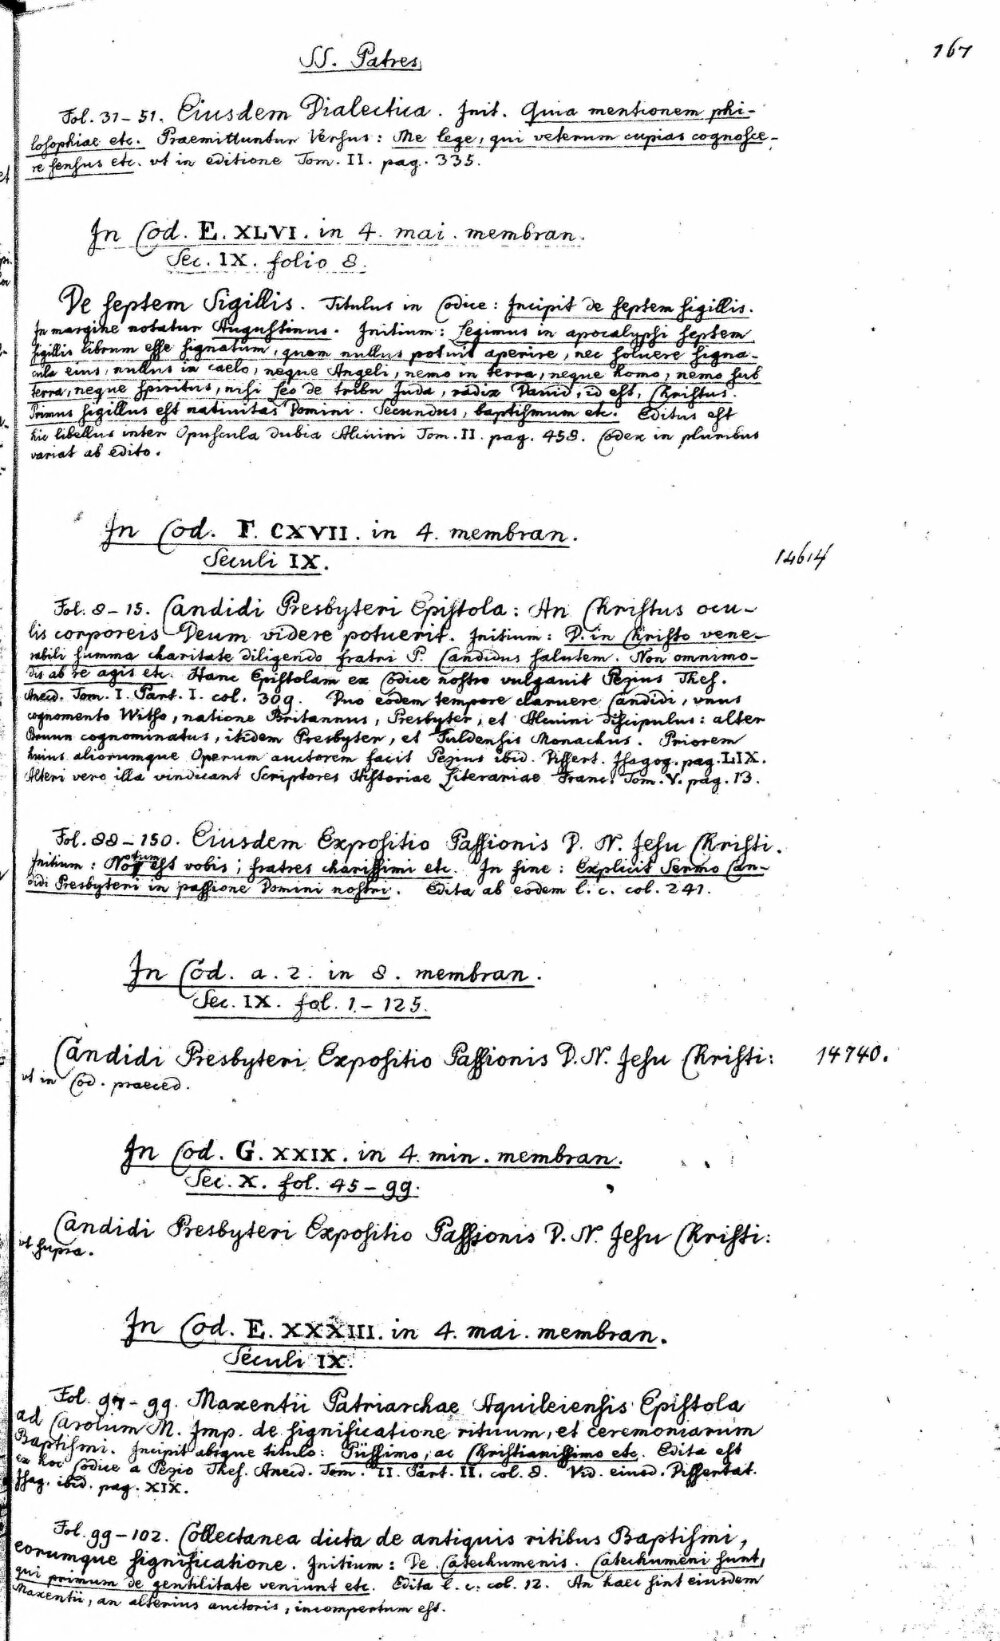 SS. Patres
167
Fol. 31-51. Eiusdem Dialectica. Init. Quia mentionem phi-
losophiae etc. Praemittuntur Versus: Me lege, qui veterum cupias cognosce-
re sensus etc. ut in editione Tom. II. pag. 335.
In Cod. E. XLVI. in 4. mai. membran.
Sec. IX. folio 8.
De septem Sigillis. Titulus in Codice: Incipit de septem sigillis.
In margine notatur Augustinus. Initium: Legimus in apocalypsi septem
sigillis librum esse signatum, quem nullus potuit aperire, nec soluere signa-
cula eius, nullus in caelo, neque Angeli, nemo in terra, neque homo, nemo sub
terra, neque spiritus, nisi Leo de tribu Juda, radix Dauid, id est, Christus.
Primus sigillus est nativitas Domini. Secundus, baptismum etc. Editus est
hic libellus inter Opuscula dubia Alcuini Tom. II. pag. 458. Codex in pluribus
variat ab edito.
In Cod. F. CXVII. in 4. membran.
Seculi IX.
14614
Fol. 8-15. Candidi Presbyteri Epistola: An Christus ocu-
lis corporeis Deum videre potuerit. Initium: D. in Christo vene-
rabili summa charitate diligendo fratri P. Candidus salutem. Non omnimo-
dis ab re agis etc. Hanc Epistolam ex Codice nostro vulgavit Pezius Thes.
Anecd. Tom. I. Part. I. col. 309. Duo eodem tempore claruere Candidi, unus
cognomento Witso, natione Britannus, Presbyter, et Alcuini Discipulus: alter
Bruun cognominatus, itidem Presbyter, et Fuldensis Monachus. Priorem
huius aliorumque Operum auctorem facit Pezius ibid. Dissert. Isagog. pag. LIX.
Alteri vero illa vindicant Scriptores Historiae Literariae Franc. Tom. V. pag. 13.
Fol. 88-150. Eiusdem Expositio Passionis D. N. Jesu Christi.
Initium: Notum est vobis, fratres charissimi etc. In fine: Explicit Sermo Can-
didi Presbyteri in passione Domini nostri. Edita ab eodem l. c. col. 241.
In Cod. a. 2. in 8. membran.
Sec. IX. fol. 1-125.
Candidi Presbyteri Expositio Passionis D. N. Jesu Christi:
14740.
ut in Cod. praeced.
In Cod. G. XXIX. in 4. min. membran.
Sec. X. fol. 45-99.
Candidi Presbyteri Expositio Passionis D. N. Jesu Christi:
ut supra.
In Cod. E. XXXIII. in 4. mai. membran.
Seculi IX.
Fol. 97-99. Maxentii Patriarchae Aquileiensis Epistola
ad Carolum M. Imp. de significatione rituum, et ceremoniarum
Baptismi. Incipit absque titulo: Piissimo, ac Christianissimo etc. Edita est
ex hoc Codice a Pezio Thes. Anecd. Tom. II. Part. II. col. 8. Vid. eiusd. Dissertat.
Isag. ibid. pag. XIX.
Fol. 99-102. Collectanea dicta de antiquis ritibus Baptismi,
eorumque significatione. Initium: De Catechumenis. Catechumeni sunt,
qui primum de gentilitate veniunt etc. Edita l. c. col. 12. An haec sint eiusdem
Maxentii, an alterius auctoris, incompertum est.